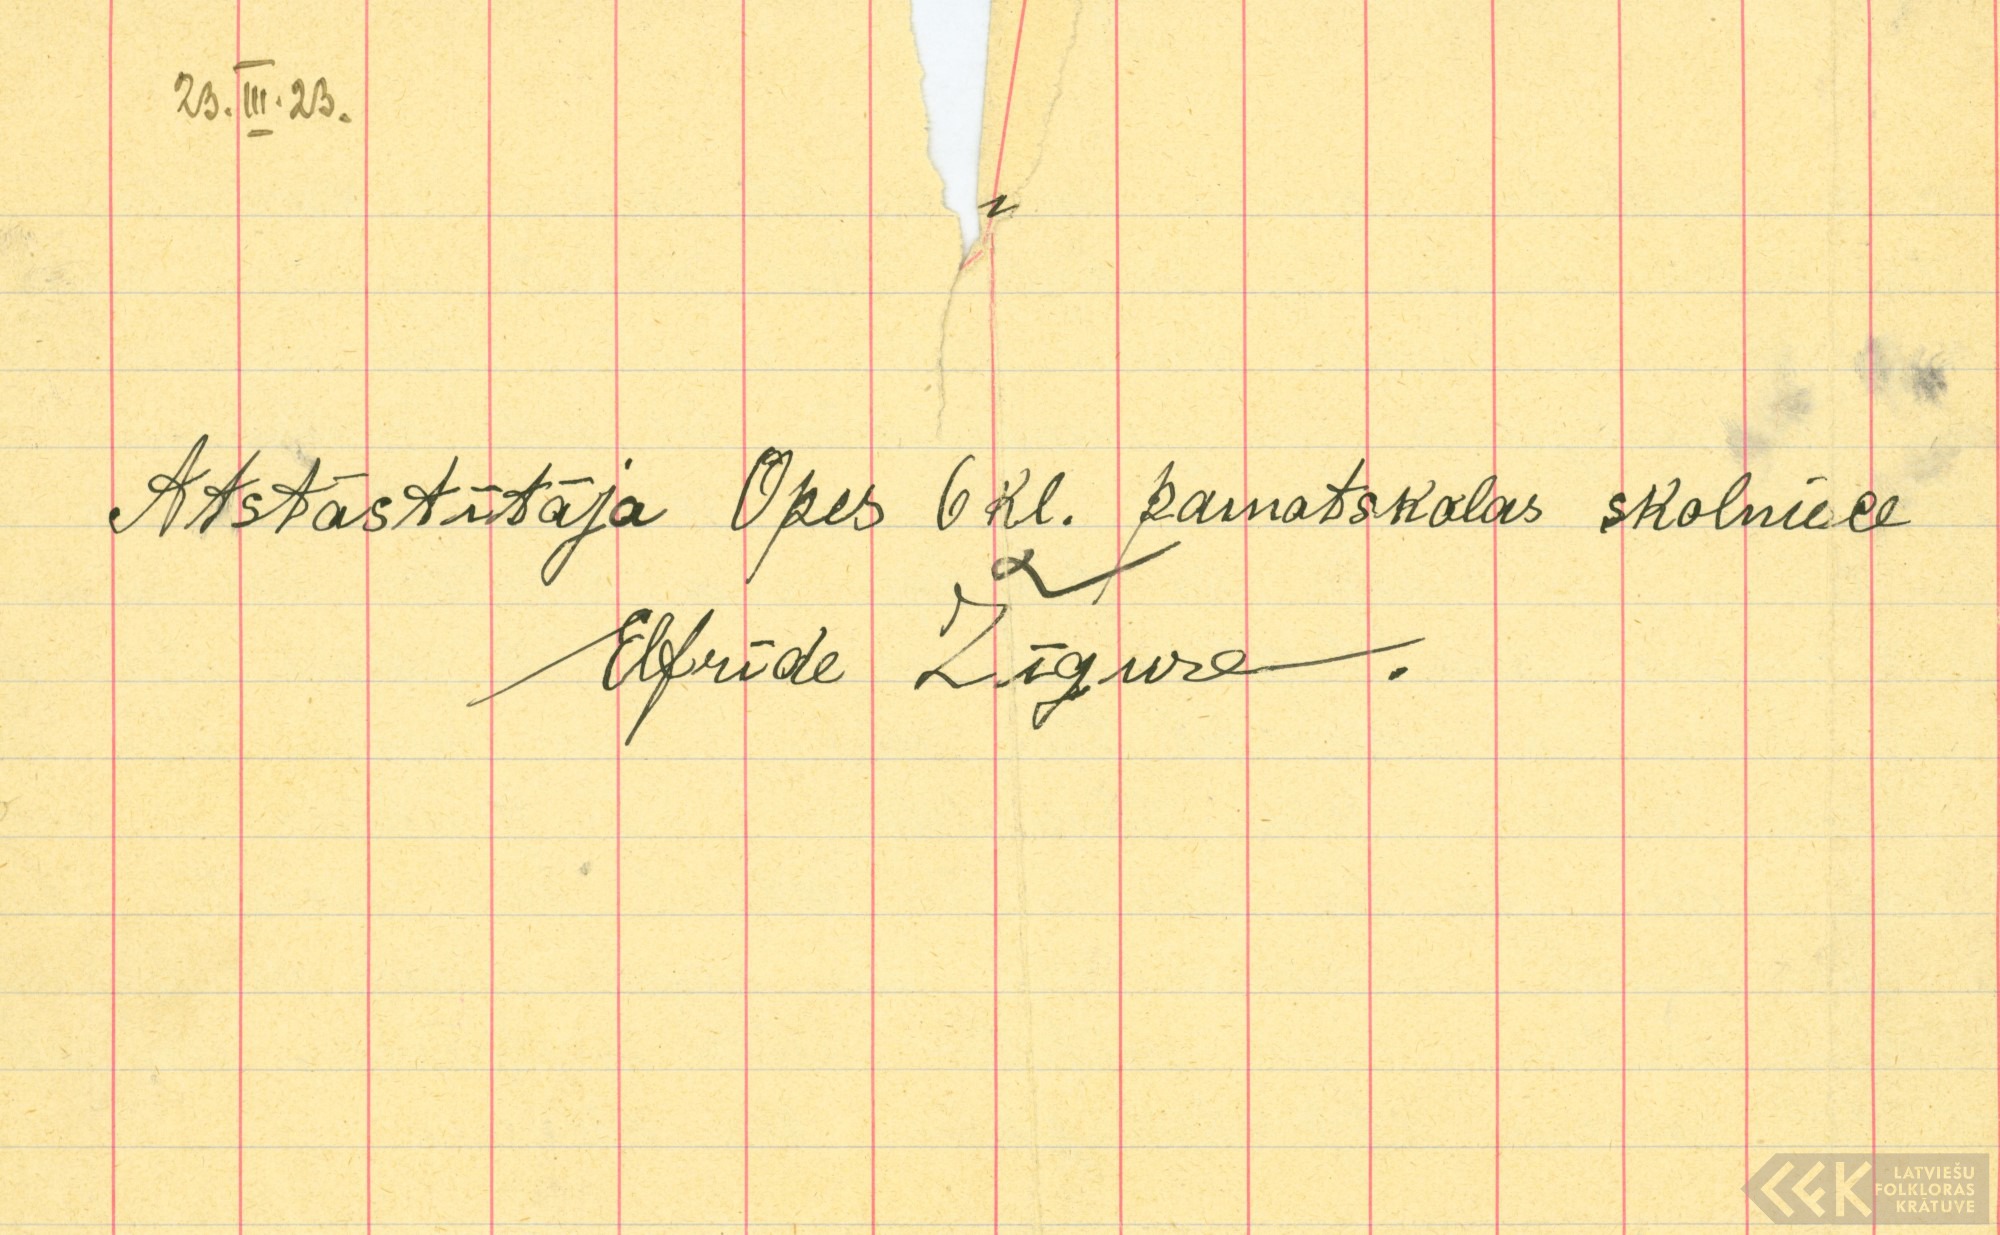 23. III. 23.
Atstāstītāja Opes 6 kl. pamatskolas skolniece
Elfrīde Zīgure.
LATVIEŠU
FOLKLORAS
KRĀTUVE